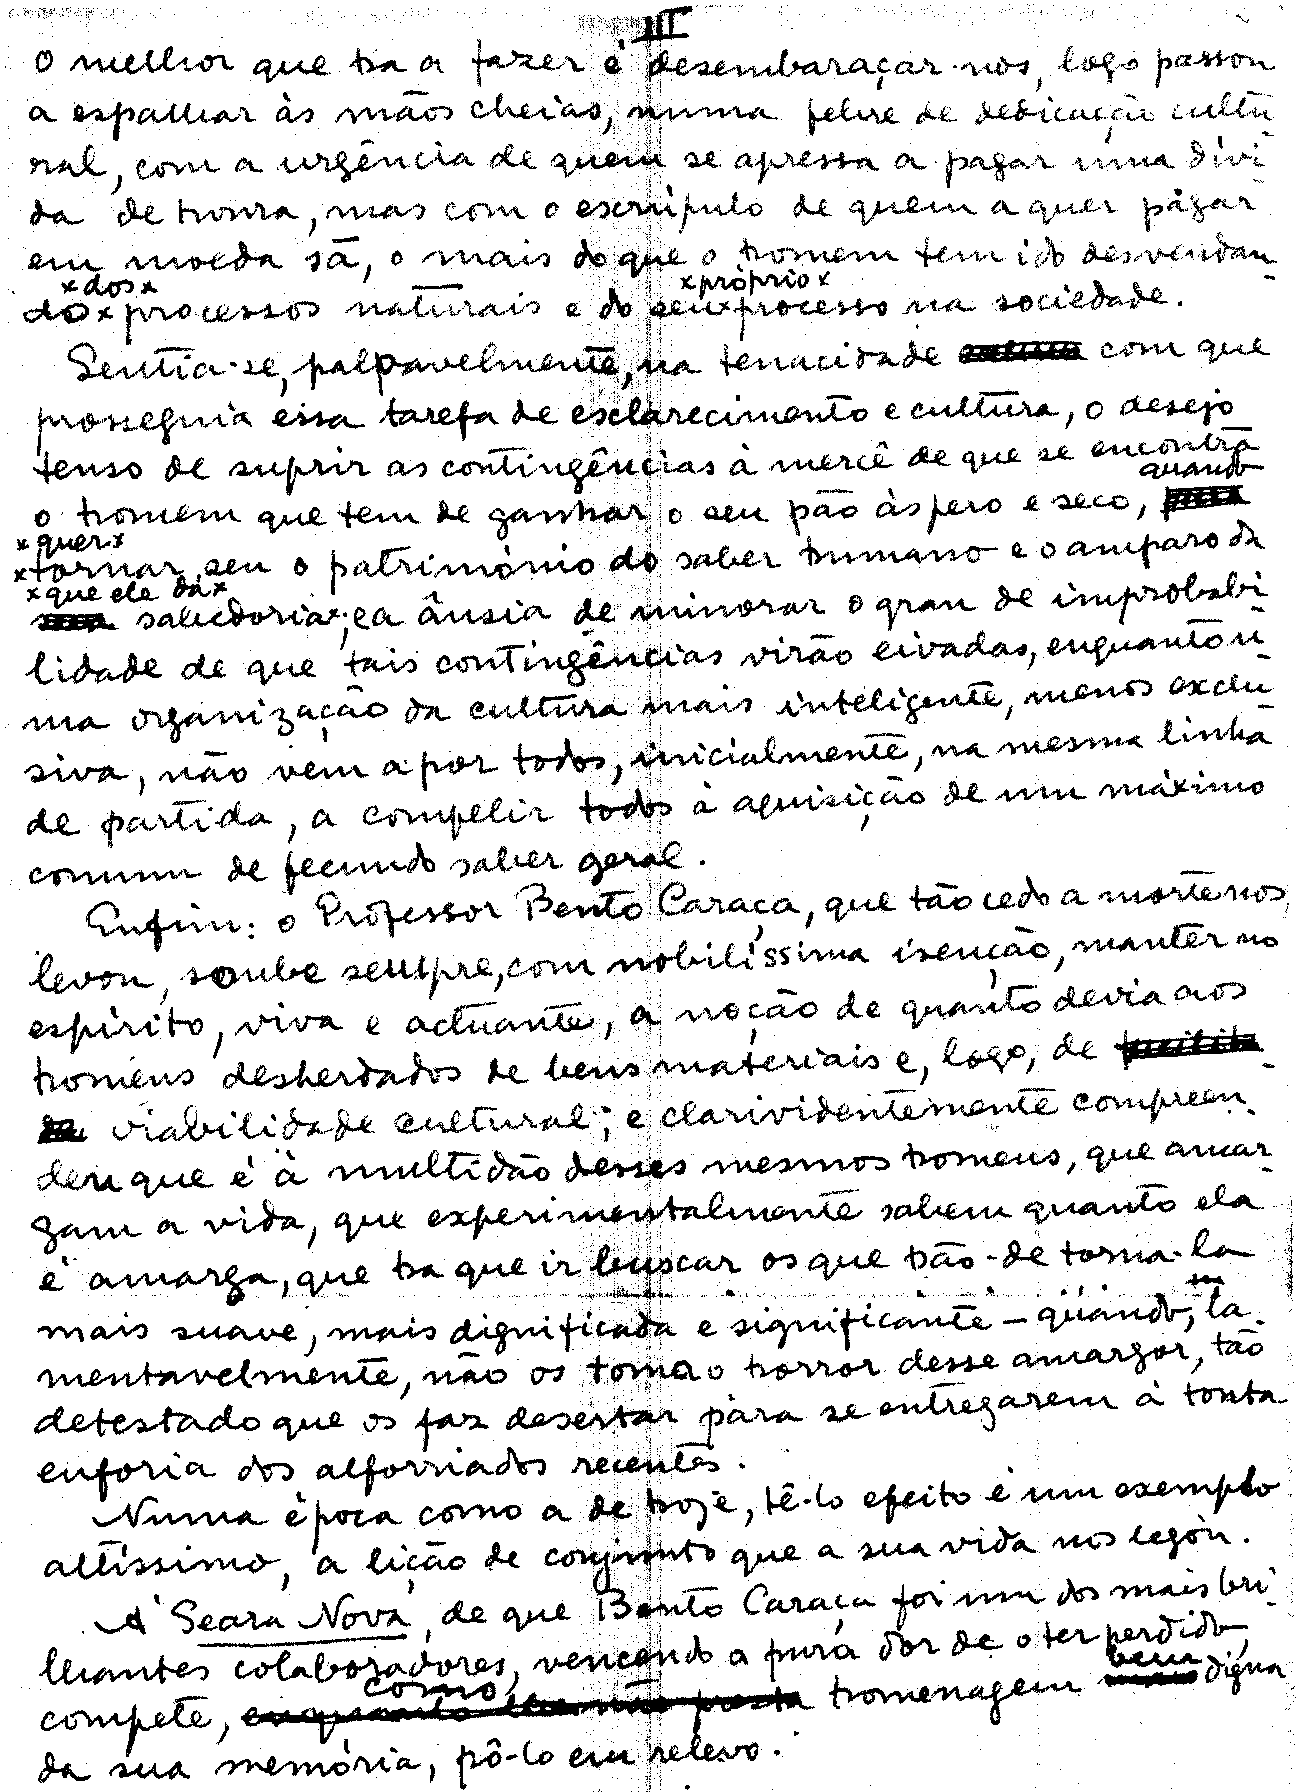 III
o melhor que ha a fazer é desembaraçar-nos, logo passou
a espalhar às mãos cheias, numa febre de dedicação cultu-
ral, com a urgência de quem se apressa a pagar uma dívi-
da de honra, mas com o escrúpulo de quem a quer pagar
em moeda sã, o mais do que o homem tem ido desvendan-
x dos x x próprio x
do x processos naturais e do seu x processo na sociedade.
Sentia-se, palpavelmente, na tenacidade com que
prosseguia essa tarefa de esclarecimento e cultura, o desejo
tenso de suprir as contingências à mercê de que se encontra
quando
o homem que tem de ganhar o seu pão àspero e seco,
x quer x
x tornar seu o património do saber humano e o amparo da
x que ele dá x
sabedoria x; e a ânsia de minorar o grau de improbabi-
lidade de que tais contingências virão eivadas, enquanto u-
ma organização da cultura mais inteligente, menos exclu-
siva, não vem a por todos, inicialmente, na mesma linha
de partida, a compelir todos à aquisição de um máximo
comum de fecundo saber geral.
Enfim: o Professor Bento Caraça, que tão cedo a morte nos
levou, soube sempre, com nobilíssima isenção, manter no
espírito, viva e actuante, a noção de quanto devia aos
homens desherdados de bens materiais e, logo, de
viabilidade cultural; e clarividentemente compreen-
deu que é à multidão desses mesmos homens, que amar-
gam a vida, que experimentalmente sabem quanto ela
é amarga, que ha que ir buscar os que hão-de torna-la
mais suave, mais dignificada e significante – quando, la-
mentavelmente, não os toma o horror desse amargor, tão
detestado que os faz desertar para se entregarem à tonta
euforia dos alforriados recentes.
Numa època como a de hoje, tê-lo efeito é um exemplo
altíssimo, a lição de conjunto que a sua vida nos legou.
A' Seara Nova, de que Bento Caraça foi um dos mais bri-
lhantes colaboradores, vencendo a pura dor de o ter perdido,
como, bem
compete, homenagem digna
da sua memória, pô-lo em relevo.